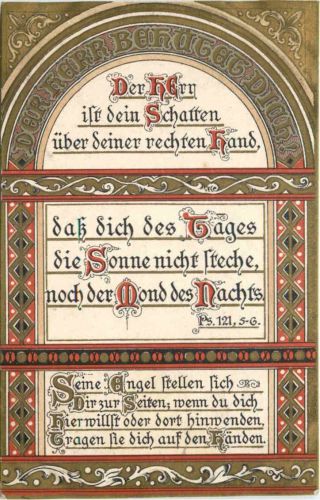 DER HERR BEHÜTET DICH!
Der HErr
ist dein Schatten
über deiner rechten Hand,
daß dich des Tages
die Sonne nicht steche,
noch der Mond des Nachts.
Ps. 121, 5-6.
Seine Engel stellen sich
Dir zur Seiten; wenn du dich
Hier willst oder dort hinwenden,
Tragen sie dich auf den Händen.